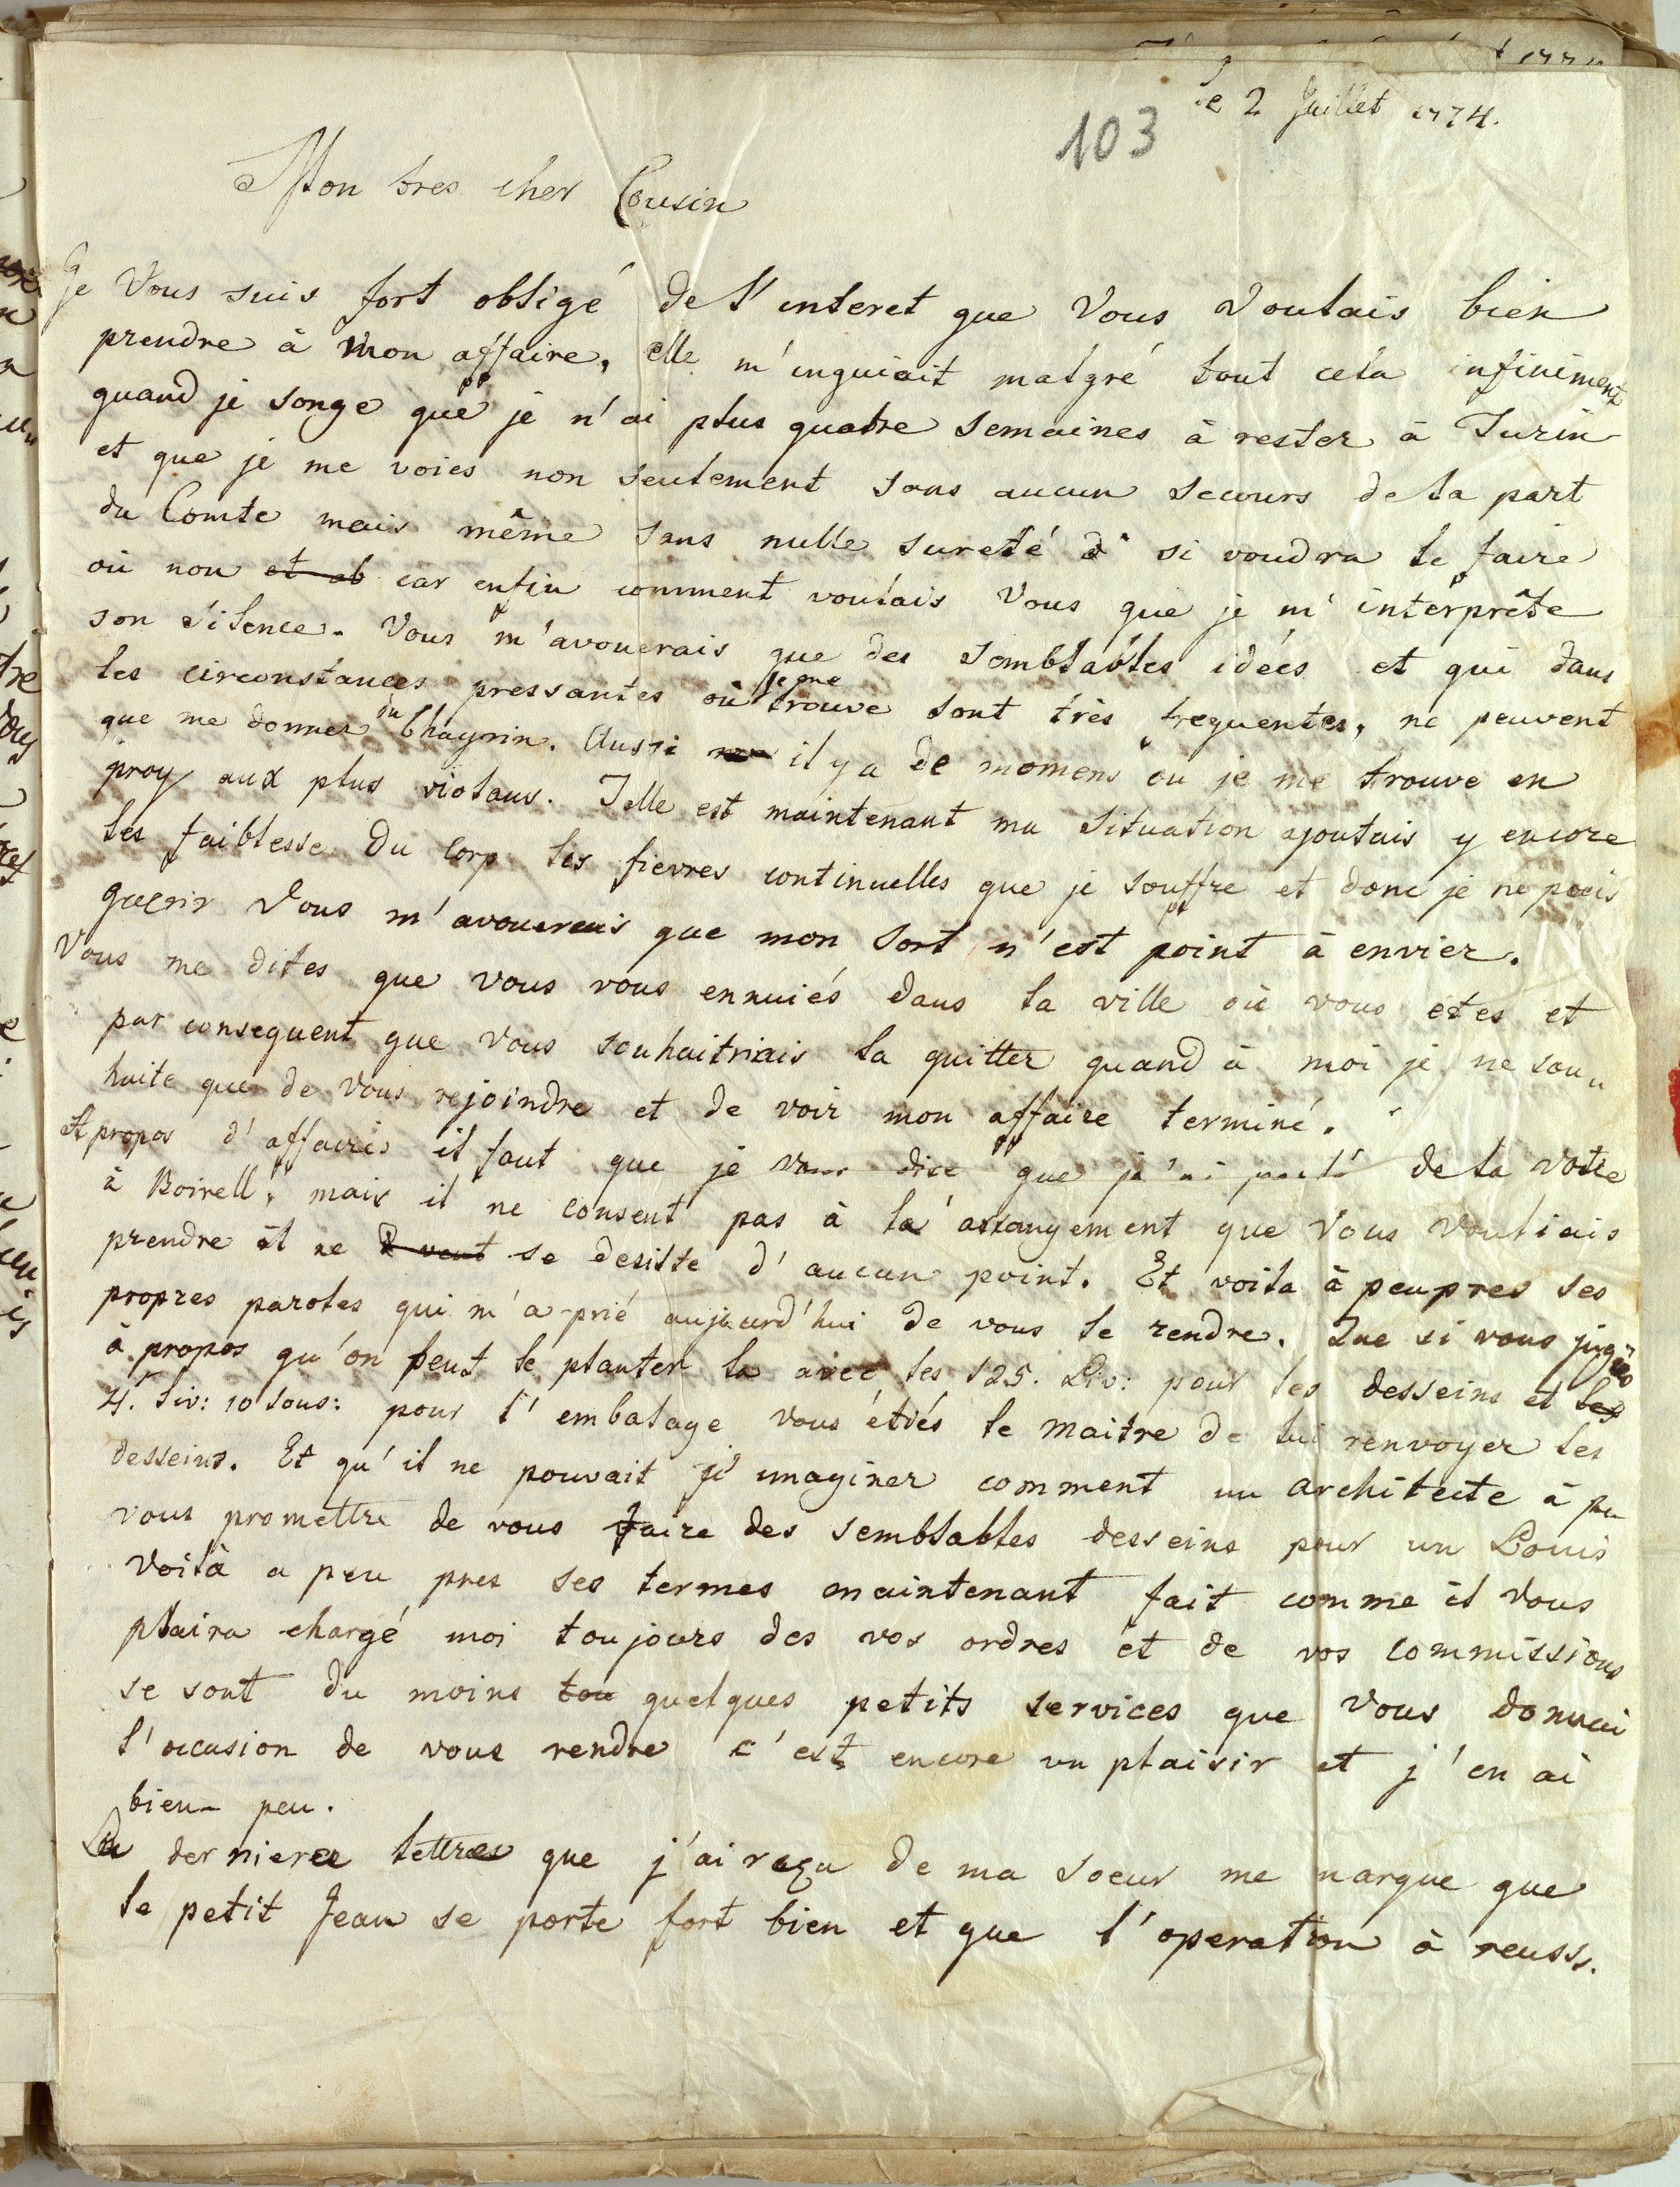 le 2 Juillet 1774.
103
Mon tres cher Cousin
Je Vous suis fort obligé de l'interet que Vous Voulais bien
prendre à mon affaire, elle m'inquiait malgré tout cela infiniment
quand je songe que je n'ai plus quatre semaines à rester à Turin
et que je me voies non seulement sans aucun secours de la part
du Comte mais même sans nulle sureté si voudra le faire
où non et ab car enfin comment voulais Vous que je m'interprête
son silence. Vous m'avouerais que des semblables idées et qui dans
les circonstances pressantes où je me trouve sont très frequentes, ne peuvent
que me donner du Chagrin. Aussi il y a de momens ou je me trouve en
proy aux plus violans. Telle est maintenant ma situation ajoutais y encore
les faiblesse du Corp les fievres continuelles que je souffre et donc je ne puis
guerir Vous m'avouerais que mon sort n'est point à envier.
Vous me dites que vous vous ennuiés dans la ville où vous etes et
par consequent que Vous souhaitriais la quitter quand à moi je ne sou„
haite que de Vous rejoindre et de voir mon affaire terminé.
A propos d'affaires il faut que je vous dise que j'ai parlé de la votre
à Boirell, mais il ne consent pas à la arrangement que Vous Vouliais
prendre il ne veut se desiste d'aucun point. Et voila à peu pres ses
propres paroles qui m'a prié aujourd'hui de vous le rendre. Que si vous jugiés
à propos qu'on peut le planter la avec les 125. Liv: pour les desseins et les
4. liv: 10 sous: pour l'embalage vous étiés le maitre de lui renvoyer les
desseins. Et qu'il ne pouvait s'imaginer comment un architecte à pu
vous promettre de vous faire des semblables desseins pour un Louis
Voilà a peu pres ses termes maintenant fait comme il Vous
plaira chargé moi toujours des vos ordres et de vos commissions
se sont du moins tou quelques petits services que Vous donnai
l'occasion de vous rendre c'est encore un plaisir et j'en ai
bien peu.
La derniere lettres que j'ai reçu de ma soeur me marque que
le petit Jean se porte fort bien et que l'operation à reussi.